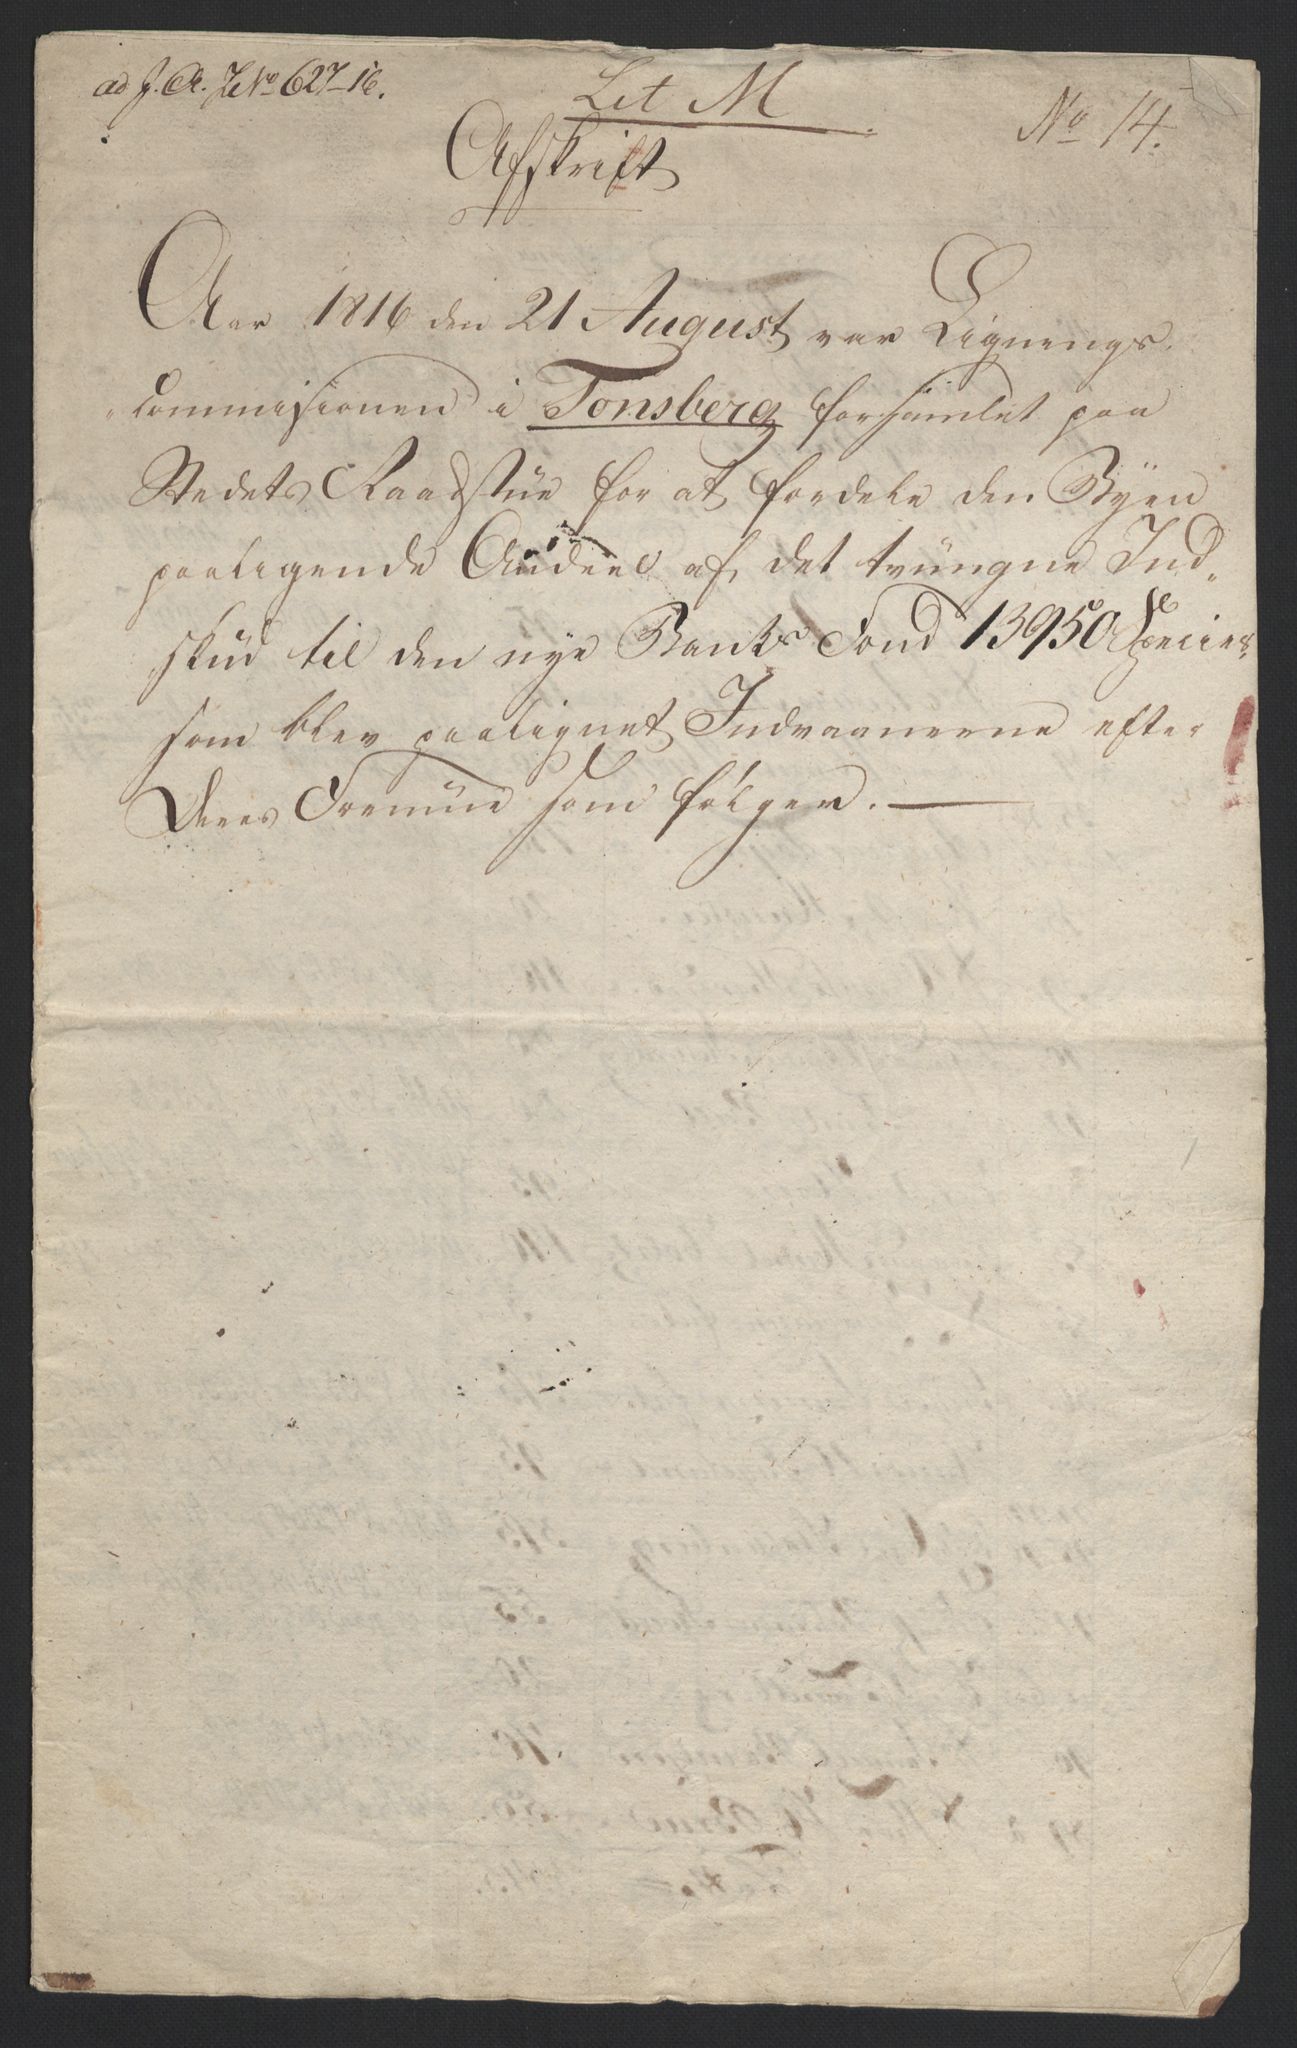 ad J. A. J No 627-16.
Let M
No 14.
Afskrift
Aar 1816 den 21 August var Lignings
Commisionen i Tonsberg forsamlet paa
Stedets Raadstue for at fordele den Byen
paaligende Andeel af det tvungne Ind„
skud til den nye Banks Fond 13950 Species,
som blev paalignet Indvaanerne efter
Deres Formue som følger.